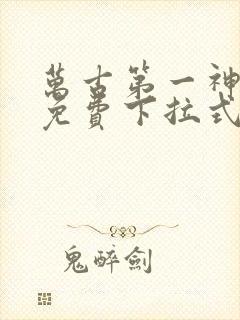 萬古第一神
免費下拉式
鬼醉劍